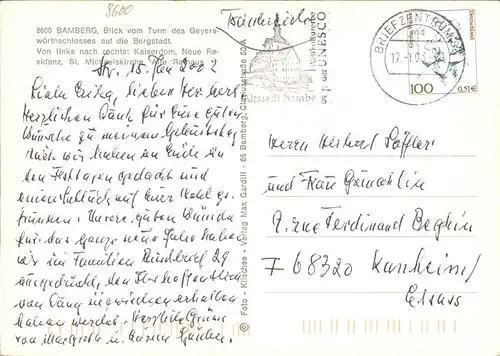 8600
8600 BAMBERG, Blick vom Turm des Geyers-
wörthschlosses auf die Bergstadt.
Von links nach rechts: Kaiserdom, Neue Re-
sidenz, St. Michaelskirche, Alte Rathaus
15. Jan 2002
Liebe Erika, lieber Herbert
Herzlichen Dank für Eure guten
Wünsche zu meinem Geburtstag
Auch wir haben an Euch in
den Festtagen gedacht und
einen Schluck auf Euer Wohl ge-
trunken. Unsere guten Wünsche
für das ganze neue Jahr haben
wir im Familien Rundbrief 29
ausgedrückt, den Ihr hoffentlich
inzwischen erhalten
haben werdet. Herzliche Grüsse
von Margrete u. Eurem
Foto - Kilschee - Verlag Max Gardill - 86 Bamberg, Clavius­straße 50 A
Weltkulturerbe
der UNESCO
Altstadt Bamberg
BRIEFZENTRUM
17.-1.0
Deutschland
100
0,51€
Herrn Herbert Löffler
und Frau
9. rue Ferdinand Beghin
F 68320 Kunheim/
Elsass